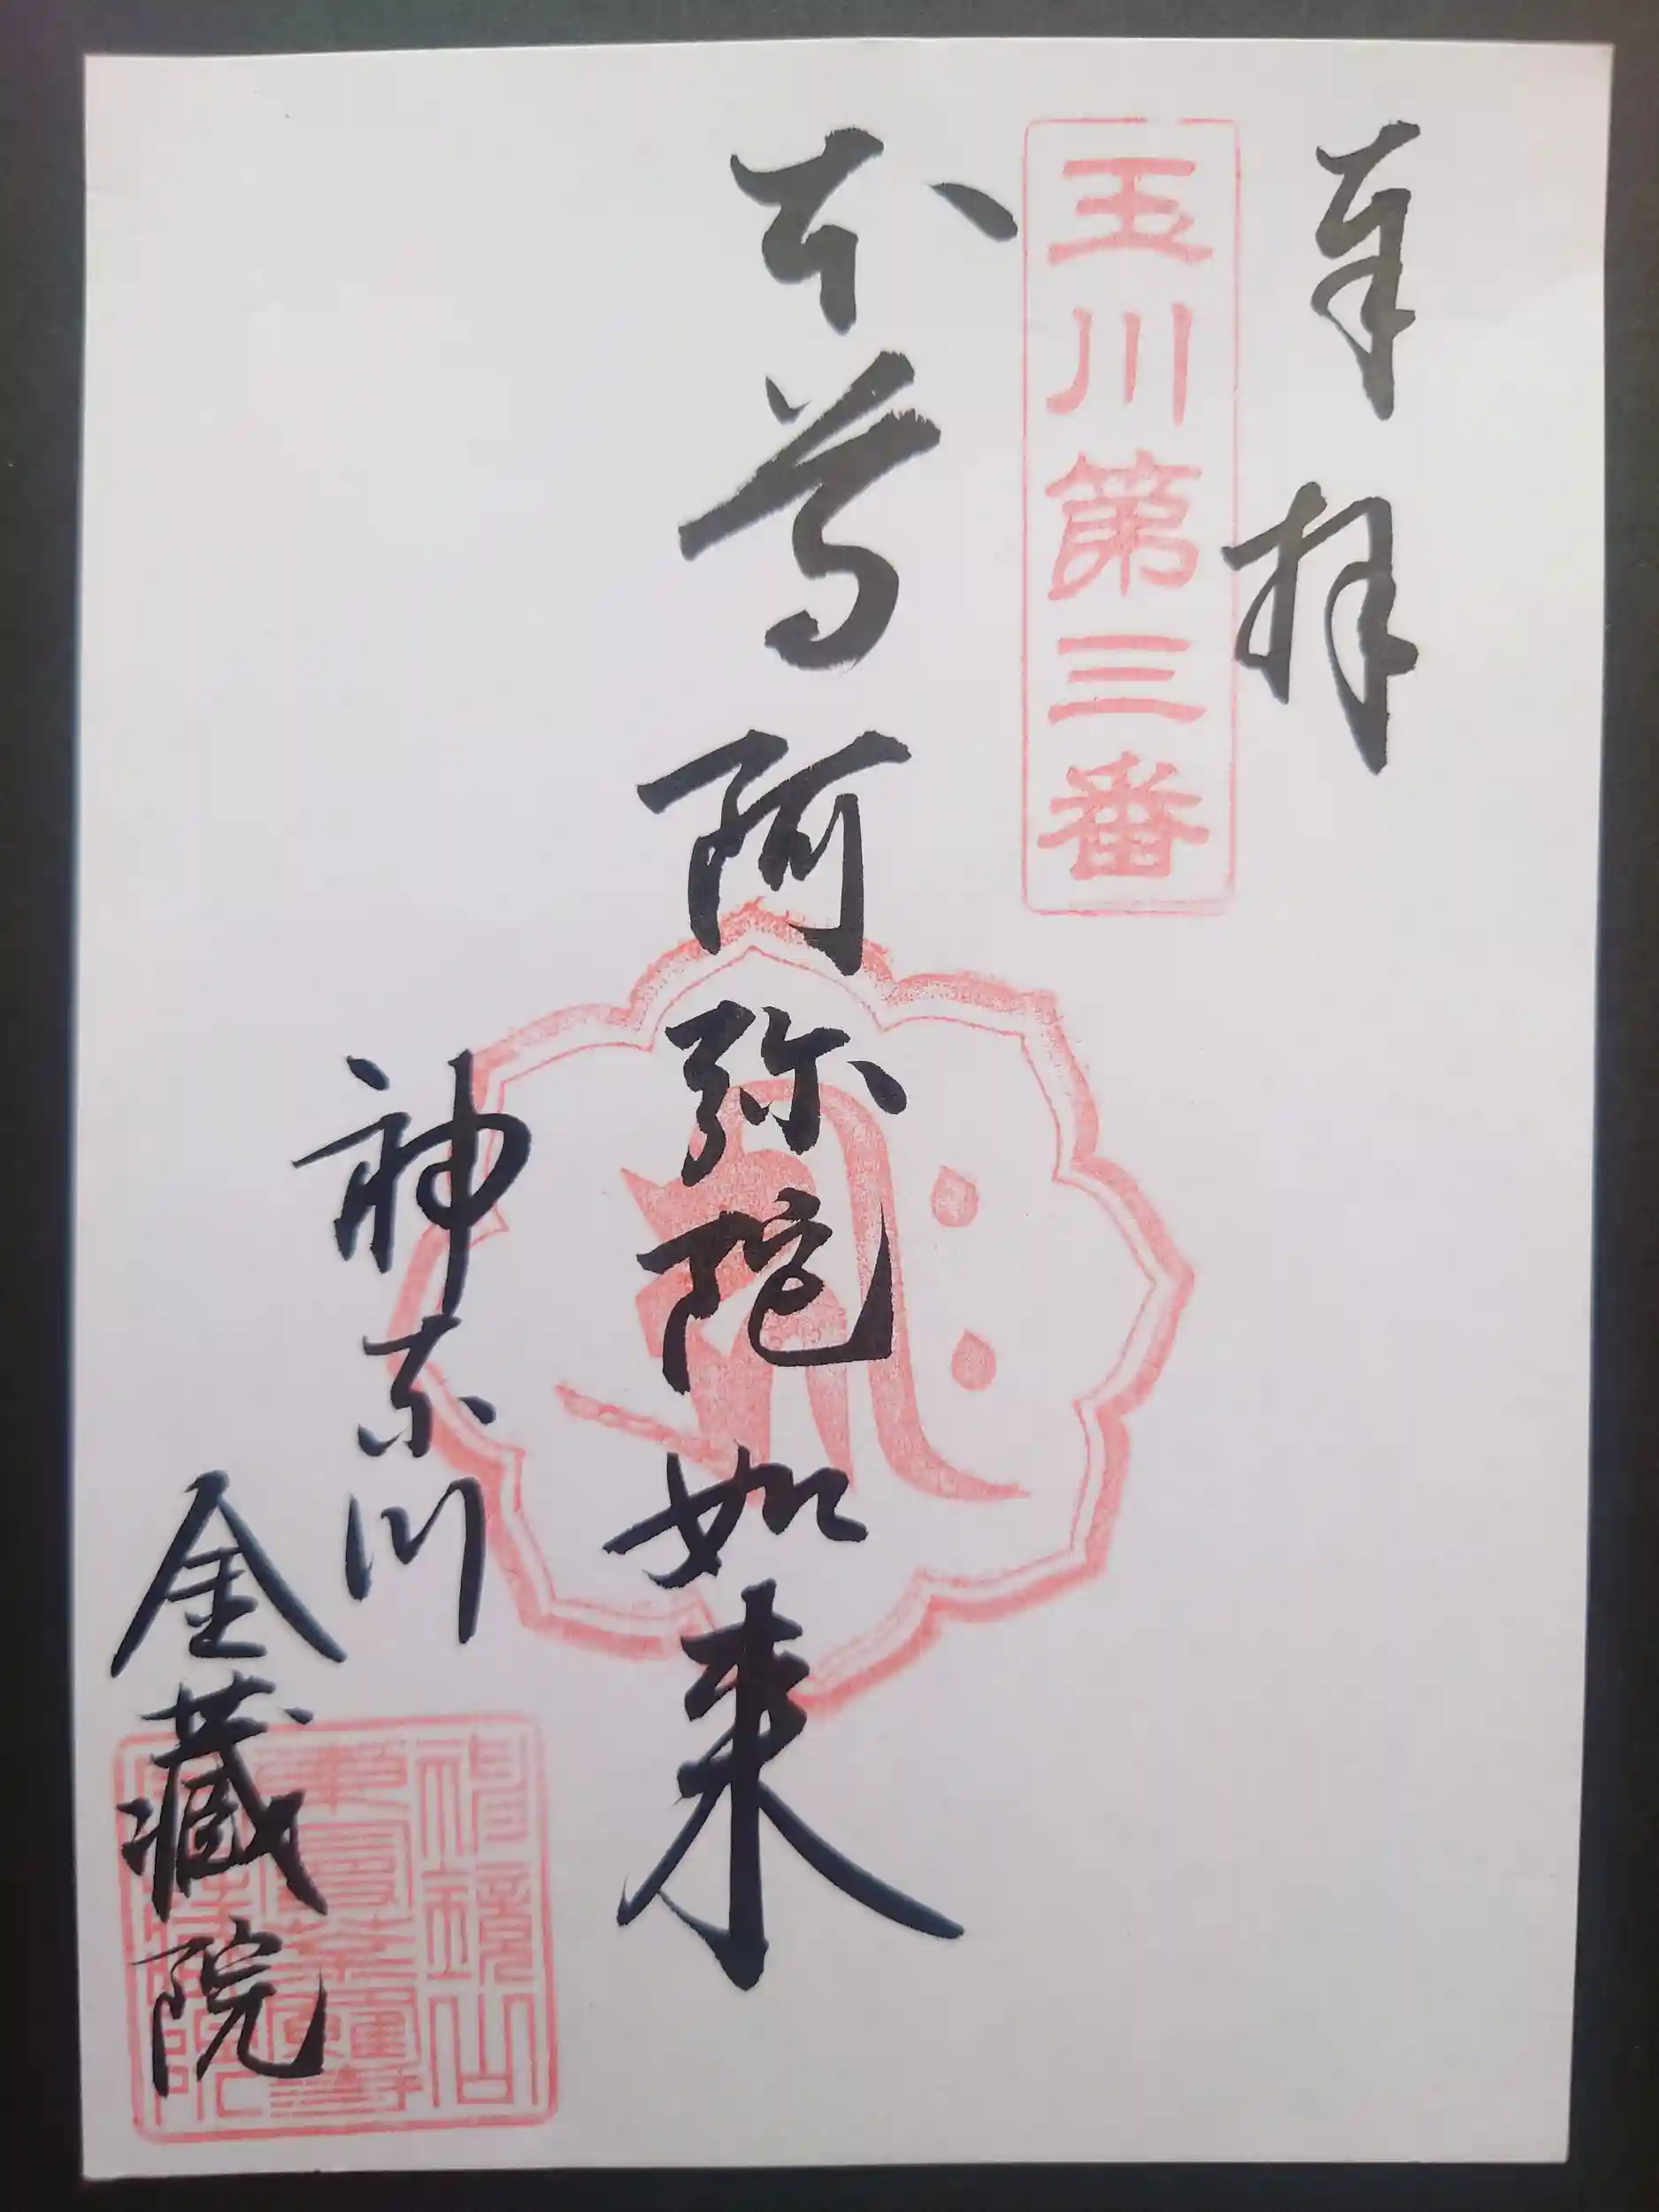 奉拝
玉川第三番
本尊阿弥陀如来
神奈川
金藏院
神鏡山